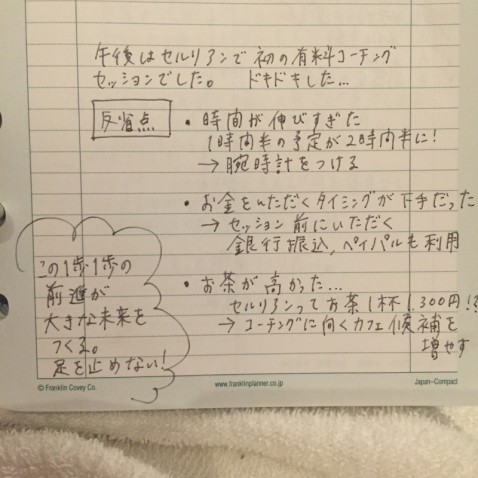 午後はセルリアンで初の有料コーチング
セッションでした。 ドキドキした...
反省点
・時間が伸びすぎた
1時間半の予定が2時間半に!
→腕時計をつける
・お金をいただくタイミングが下手だった
→セッション前にいただく
銀行振込、ペイパルも利用
・お茶が高かった...
セルリアンってお茶1杯1,300円!?
→コーチングに向くカフェ候補を
増やす
この1歩1歩の
前進が
大きな未来を
つくる。
足を止めない!
© Franklin Covey Co.
www.franklinplanner.co.jp
Japan–Compact